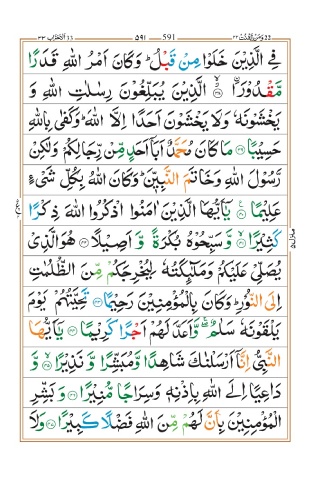 ومن يقنت ٢٢ 591 ٥٩١ الاحزاب ٣٣
فِي الَّذِيۡنَ خَلَوۡا مِنۡ قَبۡلُ ؕ وَكَانَ اَمۡرُ اللّٰهِ قَدَرًا
مَّقۡدُوۡرَا ۙ‏ ﴿۳۸﴾ اۨلَّذِيۡنَ يُبَلِّغُوۡنَ رِسٰلٰتِ اللّٰهِ وَ
يَخۡشَوۡنَهٗ وَلَا يَخۡشَوۡنَ اَحَدًا اِلَّا اللّٰهَ ؕ وَكَفٰى بِاللّٰهِ
حَسِيۡبًا ﴿۳۹﴾ مَا كَانَ مُحَمَّدٌ اَبَاۤ اَحَدٍ مِّنۡ رِّجَالِكُمۡ وَلٰكِنۡ
رَّسُوۡلَ اللّٰهِ وَخَاتَمَ النَّبِيّٖنَ ؕ وَكَانَ اللّٰهُ بِكُلِّ شَىۡءٍ
عَلِيۡمًا ﴿۴۰﴾ يٰۤاَيُّهَا الَّذِيۡنَ اٰمَنُوا اذۡكُرُوا اللّٰهَ ذِكۡرًا
كَثِيۡرًا ۙ‏ ﴿۴۱﴾ وَّ سَبِّحُوۡهُ بُكۡرَةً وَّ اَصِيۡلًا ﴿۴۲﴾ هُوَ الَّذِىۡ
يُصَلِّىۡ عَلَيۡكُمۡ وَمَلٰٓٮِٕكَتُهٗ لِيُخۡرِجَكُمۡ مِّنَ الظُّلُمٰتِ
اِلَى النُّوۡرِ ؕ وَكَانَ بِالۡمُؤۡمِنِيۡنَ رَحِيۡمًا ﴿۴۳﴾ تَحِيَّتُهُمۡ يَوۡمَ
يَلۡقَوۡنَهٗ سَلٰمٌ ۖۚ وَّاَعَدَّ لَهُمۡ اَجۡرًا كَرِيۡمًا ﴿۴۴﴾ يٰۤاَيُّهَا
النَّبِىُّ اِنَّاۤ اَرۡسَلۡنٰكَ شَاهِدًا وَّمُبَشِّرًا وَّنَذِيۡرًا ۙ‏ ﴿۴۵﴾ وَّ
دَاعِيًا اِلَى اللّٰهِ بِاِذۡنِهٖ وَسِرَاجًا مُّنِيۡرًا ﴿۴۶﴾ وَبَشِّرِ
الۡمُؤۡمِنِيۡنَ بِاَنَّ لَهُمۡ مِّنَ اللّٰهِ فَضۡلًا كَبِيۡرًا ﴿۴۷﴾ وَلَا